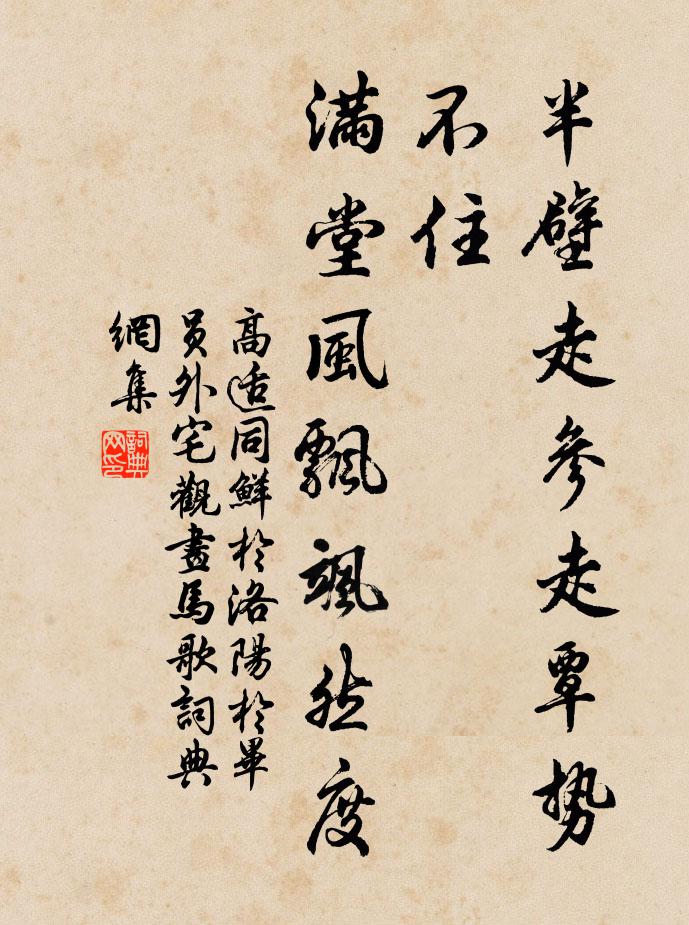 半壁走參走覃势
不住
滿堂風飄颯然度
高适同鮮於洛陽於畢
員外宅觀畫馬歌詞典
網集
詞典
网印